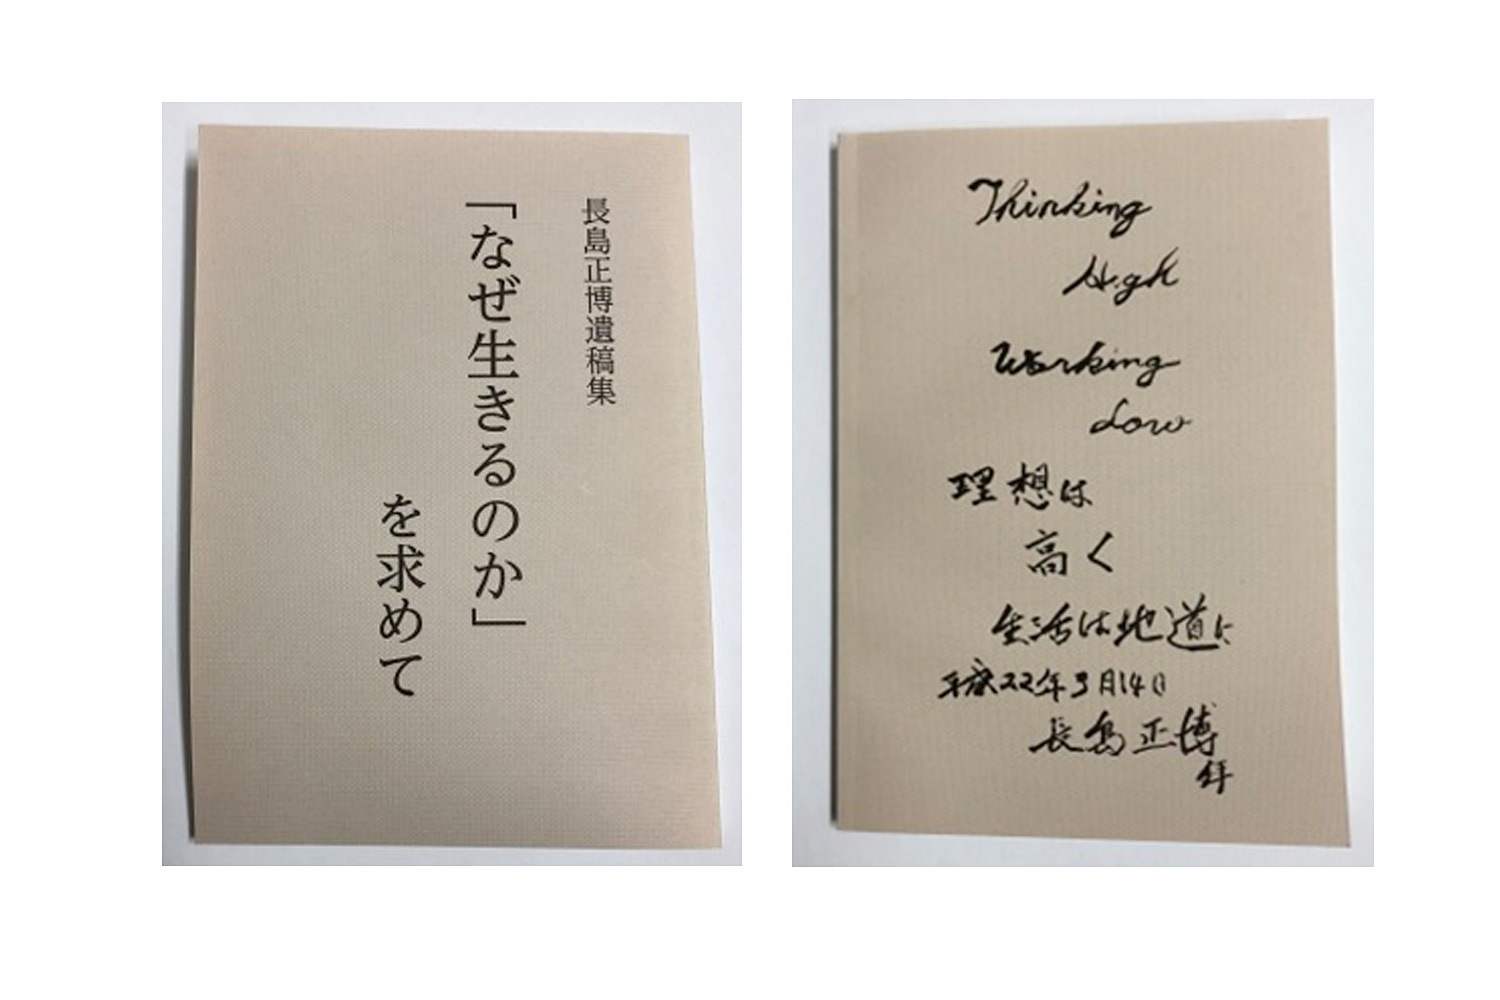 長島正博遺稿集
「なぜ生きるのか」
を求めて
Thinking
High
Working
Low
理想は
高く
生活は地道に
平成22年3月14日
長島正博